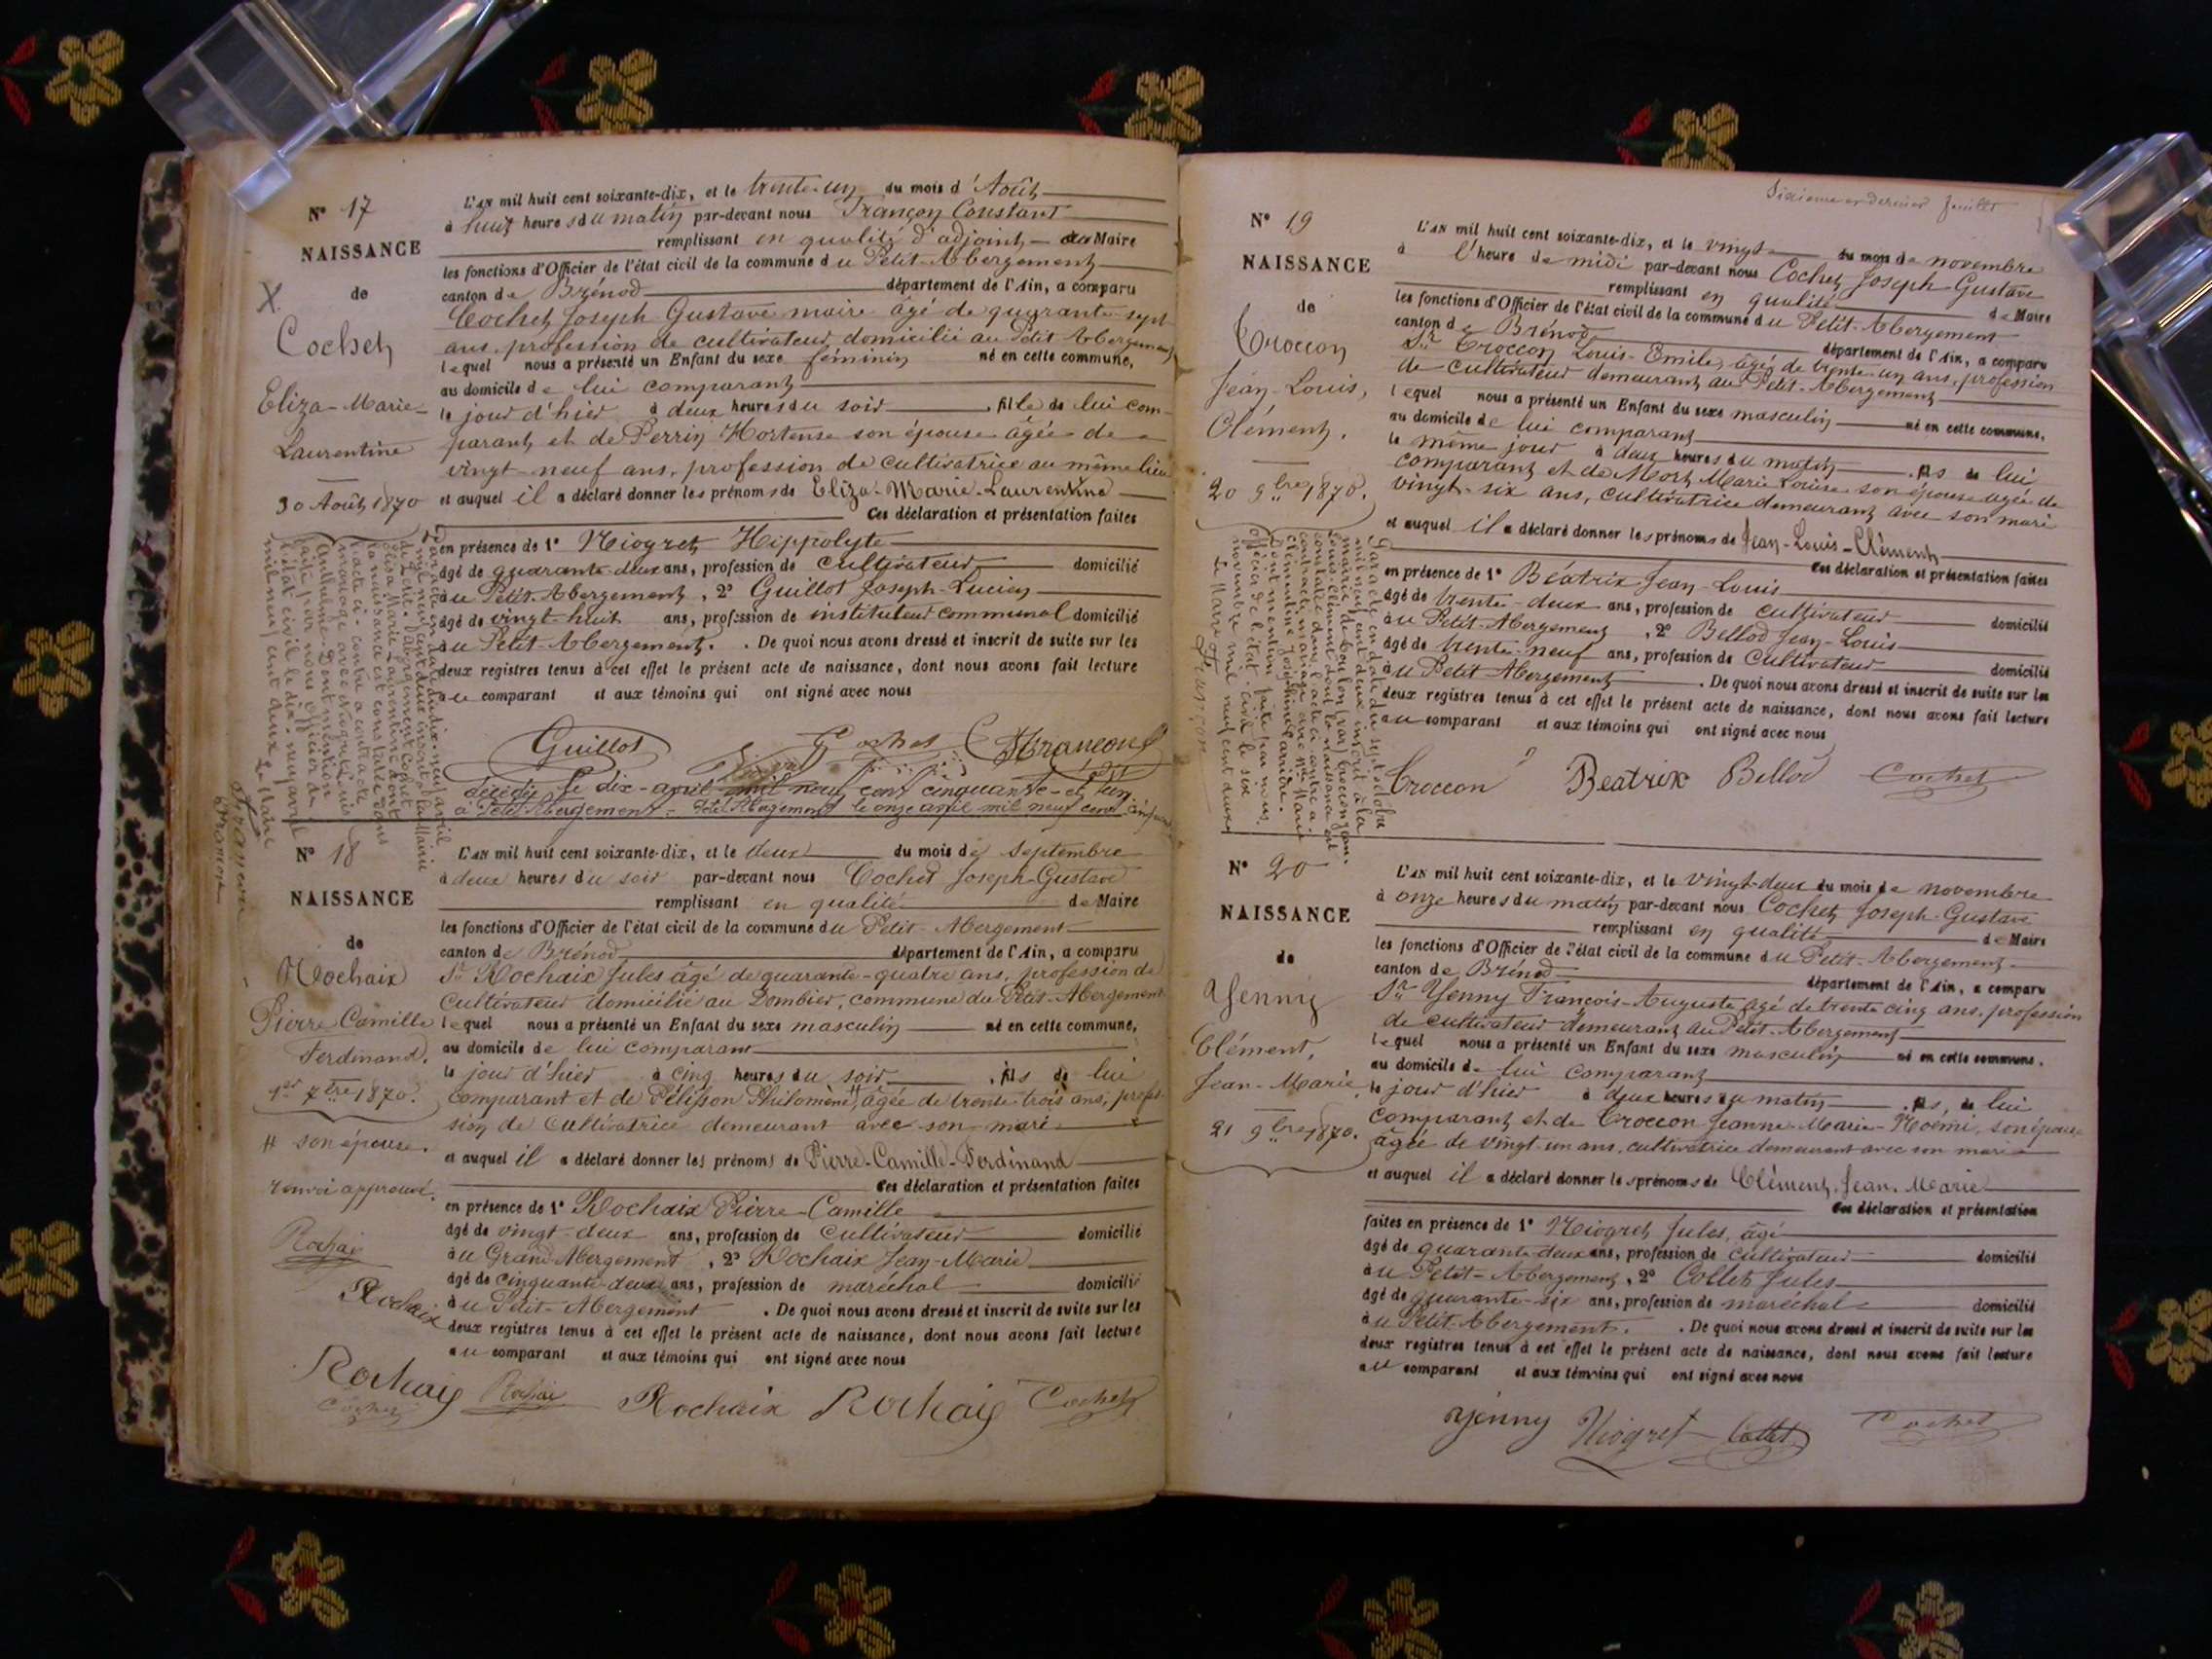 N° 17
NAISSANCE
de
Cochet
Eliza-Marie-
Laurentine
30 Août 1870
L'AN mil huit cent soixante-dix, et le trente-un du mois d'Août
à huit heures du matin par-devant nous Françon Constant
remplissant en qualité d'adjoint Maire
les fonctions d'Officier de l'état civil de la commune du Petit-Abergement
canton de Brénod département de l'Ain, a comparu
Cochet Joseph Gustave maire âgé de quarante-sept
ans, profession de cultivateur, domicilié au Petit Abergement
lequel nous a présenté un Enfant du sexe féminin né en cette commune,
au domicile de lui comparant
le jour d'hier à deux heures du soir, fille de lui com-
parant et de Perrin Hortense son épouse âgée de
vingt-neuf ans, profession de cultivatrice au même lieu
et auquel il a déclaré donner les prénoms de Eliza-Marie-Laurentine
Ces déclaration et présentation faites
en présence de 1° Niogret Hippolyte
âgé de quarante-deux ans, profession de cultivateur domicilié
au Petit-Abergement, 2° Guillot Joseph-Lucien
âgé de vingt-huit ans, profession de instituteur communal domicilié
au Petit-Abergement. De quoi nous avons dressé et inscrit de suite sur les
deux registres tenus à cet effet le présent acte de naissance, dont nous avons fait lecture
au comparant et aux témoins qui ont signé avec nous
Guillot Cochet Françon
décédée le dix-avril mil neuf cent cinquante-et un
à Petit Abergement - Petit Abergement le onze avril mil neuf cent
N° 18
NAISSANCE
de
Rochaix
Pierre Camille
Ferdinand.
1er 7bre 1870.
# son épouse.
renvoi approuvé.
Rochaix
Rochaix
L'AN mil huit cent soixante-dix, et le deux du mois de septembre
à deux heures du soir par-devant nous Cochet Joseph-Gustave
remplissant en qualité de Maire
les fonctions d'Officier de l'état civil de la commune du Petit-Abergement
canton de Brénod département de l'Ain, a comparu
Sr Rochaix Jules âgé de quarante-quatre ans, profession de
cultivateur domicilié au Dombier, commune du Petit-Abergement
lequel nous a présenté un Enfant du sexe masculin né en cette commune,
au domicile de lui comparant
le jour d'hier à cinq heures du soir, fils de lui
comparant et de Pélisson Philomène # âgée de trente-trois ans, profes-
sion de cultivatrice demeurant avec son mari
et auquel il a déclaré donner les prénoms de Pierre-Camille-Ferdinand
Ces déclaration et présentation faites
en présence de 1° Rochaix Pierre-Camille
âgé de vingt-deux ans, profession de cultivateur domicilié
au Grand Abergement, 2° Rochaix Jean-Marie
âgé de cinquante-deux ans, profession de maréchal domicilié
au Petit-Abergement. De quoi nous avons dressé et inscrit de suite sur les
deux registres tenus à cet effet le présent acte de naissance, dont nous avons fait lecture
au comparant et aux témoins qui ont signé avec nous
Rochaix Rochaix Rochaix Rochaix Cochet
Cochet
Sixième et dernier feuillet
N° 19
NAISSANCE
de
Croccon
Jean-Louis,
Clément.
20 9bre 1870.
L'AN mil huit cent soixante-dix, et le vingt du mois de novembre
à l'heure de midi par-devant nous Cochet Joseph Gustave
remplissant en qualité de Maire
les fonctions d'Officier de l'état civil de la commune du Petit-Abergement
canton de Brénod département de l'Ain, a comparu
Sr Croccon Louis-Emile, âgé de trente-un ans, profession
de cultivateur demeurant au Petit-Abergement
lequel nous a présenté un Enfant du sexe masculin né en cette commune,
au domicile de lui comparant
le même jour à deux heures du matin, fils de lui
comparant et de Mort Marie Louise son épouse âgée de
vingt-six ans, cultivatrice demeurant avec son mari
et auquel il a déclaré donner les prénoms de Jean-Louis-Clément
Ces déclaration et présentation faites
en présence de 1° Béatrix Jean-Louis
âgé de trente-deux ans, profession de cultivateur domicilié
au Petit-Abergement, 2° Bellod Jean-Louis
âgé de trente-neuf ans, profession de cultivateur domicilié
au Petit Abergement. De quoi nous avons dressé et inscrit de suite sur les
deux registres tenus à cet effet le présent acte de naissance, dont nous avons fait lecture
au comparant et aux témoins qui ont signé avec nous
Croccon Béatrix Bellod Cochet
N° 20
NAISSANCE
de
Yenny
Clément,
Jean-Marie.
21 9bre 1870.
L'AN mil huit cent soixante-dix, et le vingt-deux du mois de novembre
à onze heures du matin par-devant nous Cochet Joseph-Gustave
remplissant en qualité de Maire
les fonctions d'Officier de l'état civil de la commune du Petit-Abergement
canton de Brénod département de l'Ain, a comparu
Sr Yenny François-Auguste âgé de trente cinq ans, profession
de cultivateur demeurant au Petit-Abergement
lequel nous a présenté un Enfant du sexe masculin né en cette commune.
au domicile de lui comparant
le jour d'hier à deux heures du matin, fils, de lui
comparant et de Croccon Jeanne-Marie-Noémi, son épouse
âgée de vingt-un ans, cultivatrice demeurant avec son mari
et auquel il a déclaré donner les prénoms de Clément, Jean, Marie
Ces déclaration et présentation
faites en présence de 1° Niogret Jules, âgé
âgé de quarante-deux ans, profession de cultivateur domicilié
au Petit-Abergement, 2° Collet Jules
âgé de quarante-six ans, profession de maréchal domicilié
au Petit-Abergement. De quoi nous avons dressé et inscrit de suite sur les
deux registres tenus à cet effet le présent acte de naissance, dont nous avons fait lecture
au comparant et aux témoins qui ont signé avec nous
Yenny Niogret Collet Cochet